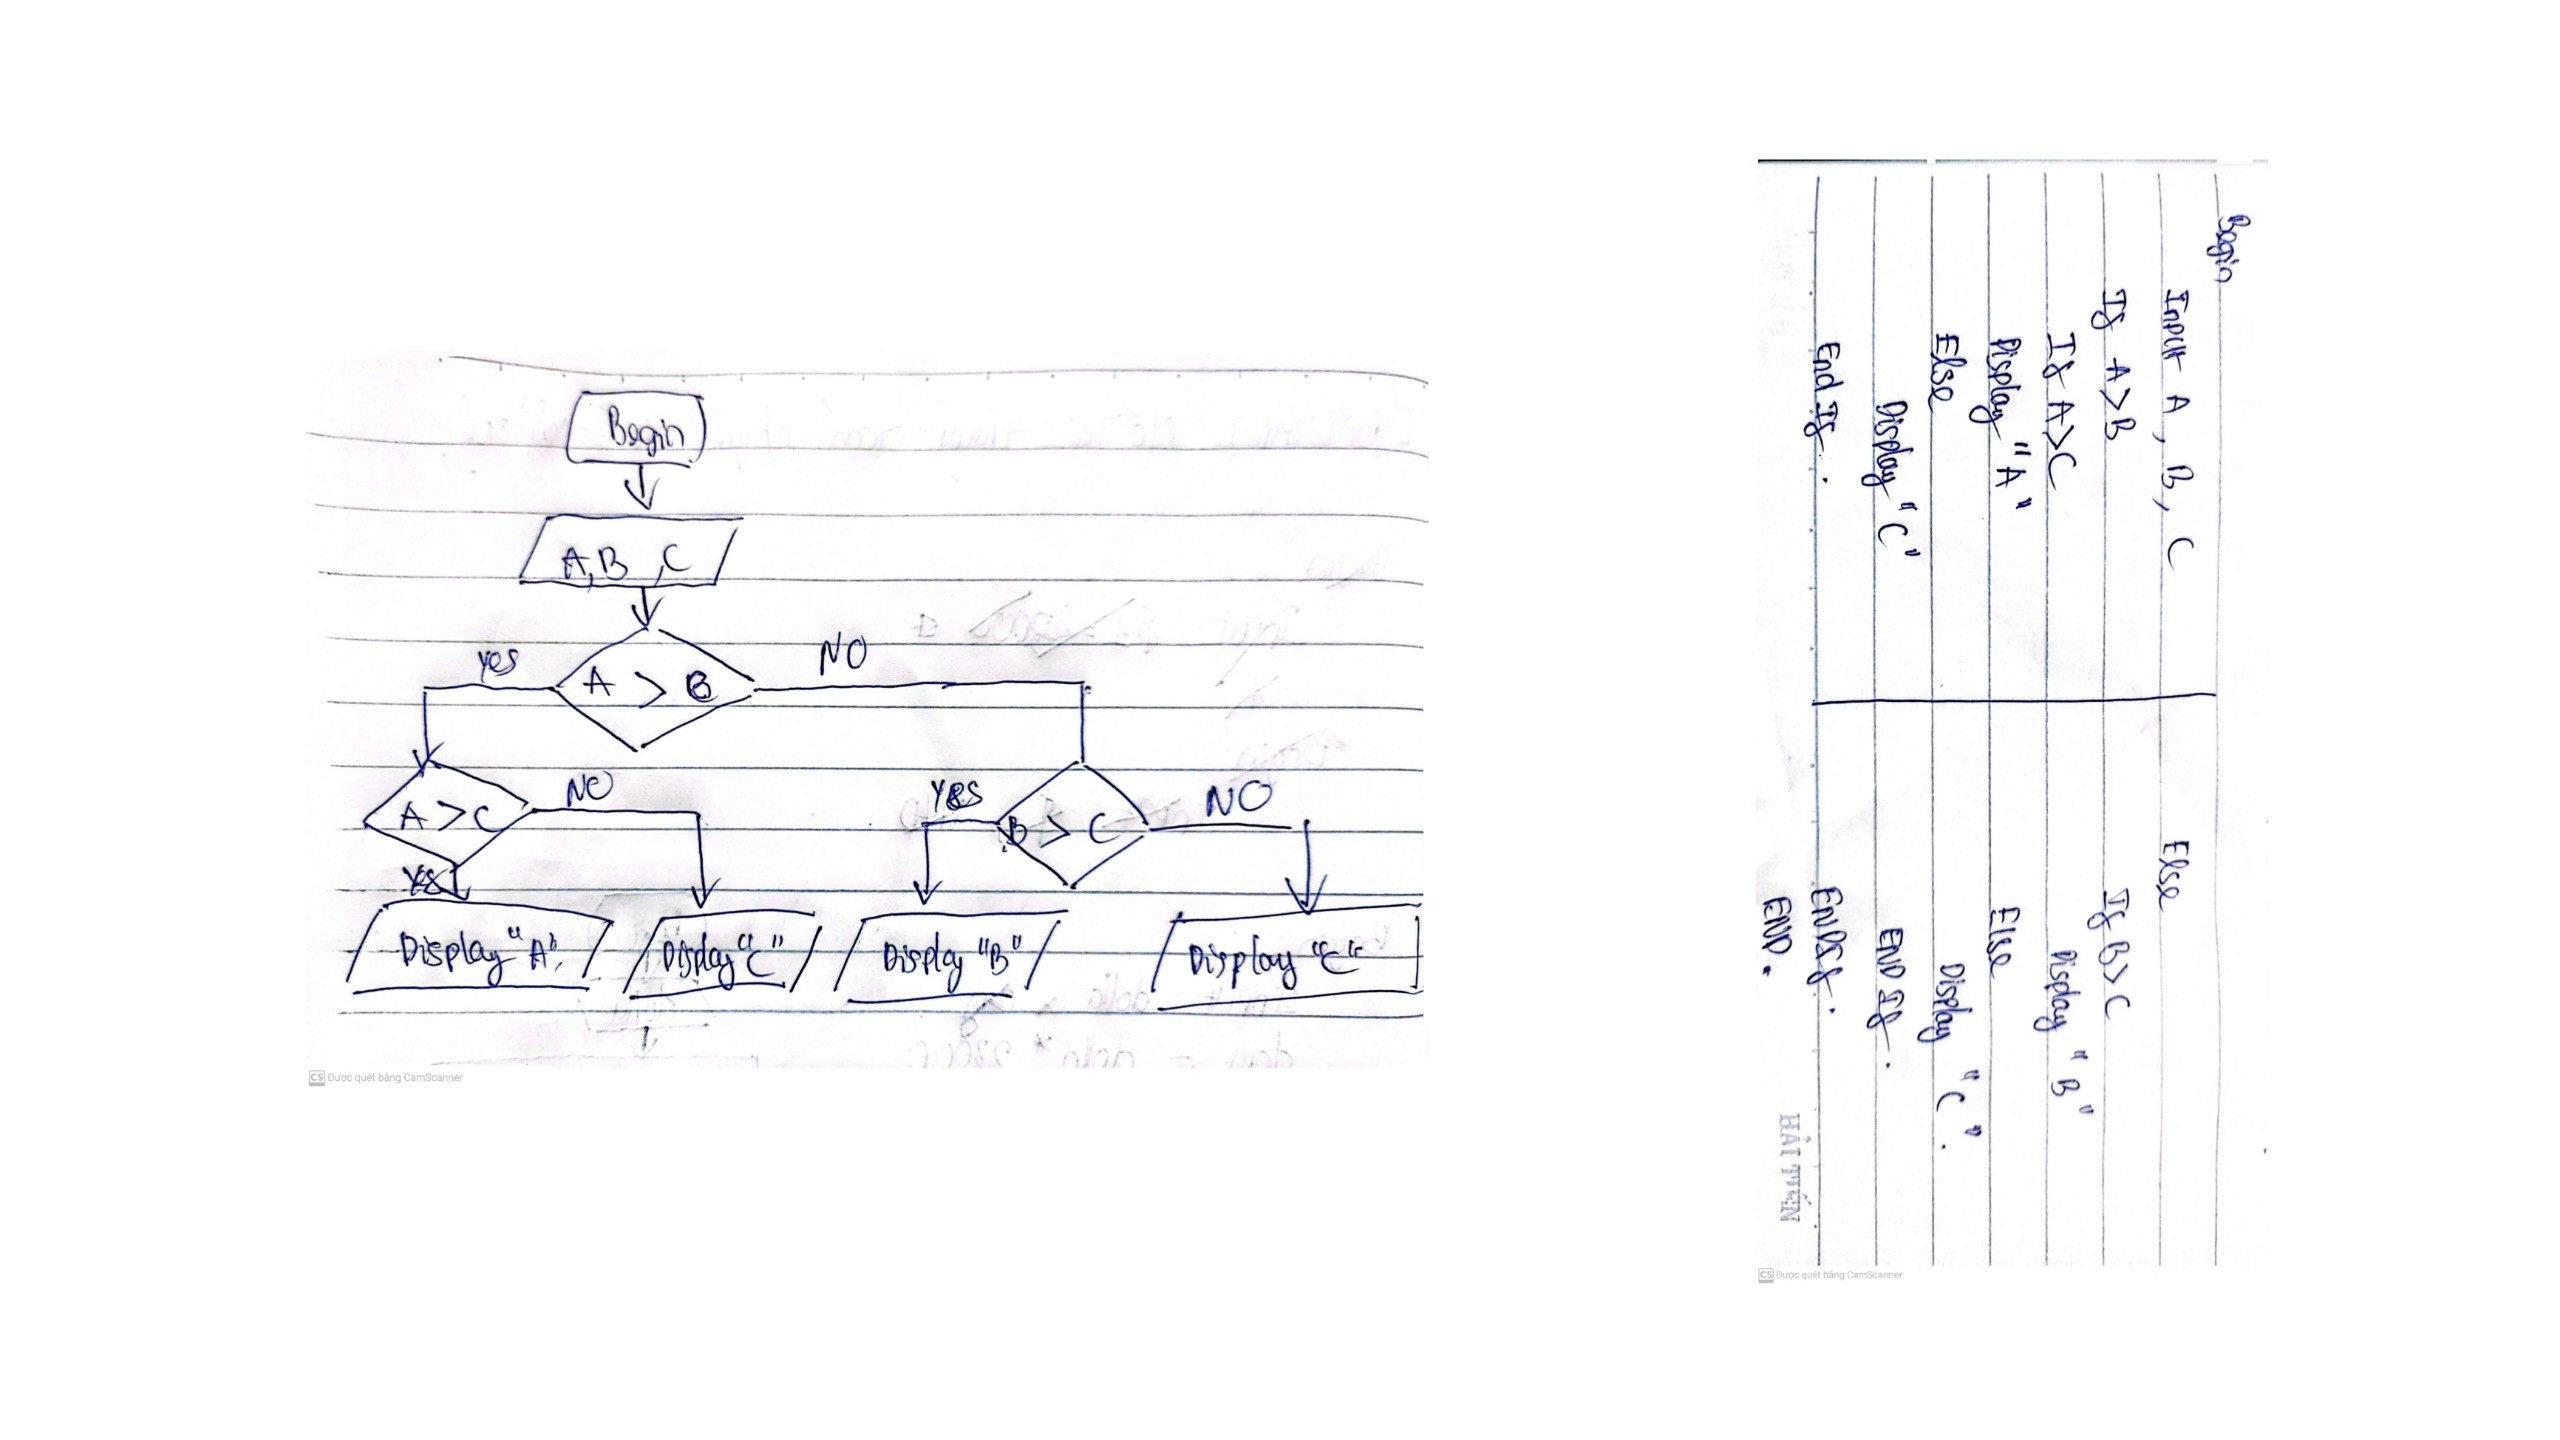 Begin
A, B , C
A > B
yes
NO
A > C
NO
yes
B > C
yes
NO
Display "A".
Display "C"
Display "B"
Display "C"
CS Được quét bằng CamScanner
Begin
Input A, B, C
If A>B
If A>C
Display "A"
Else
Display "C"
End If.
Else
If B>C
Display "B"
Else
Display "C".
END If.
ENDIf.
END.
HẢI TIẾN
CS Được quét bằng CamScanner